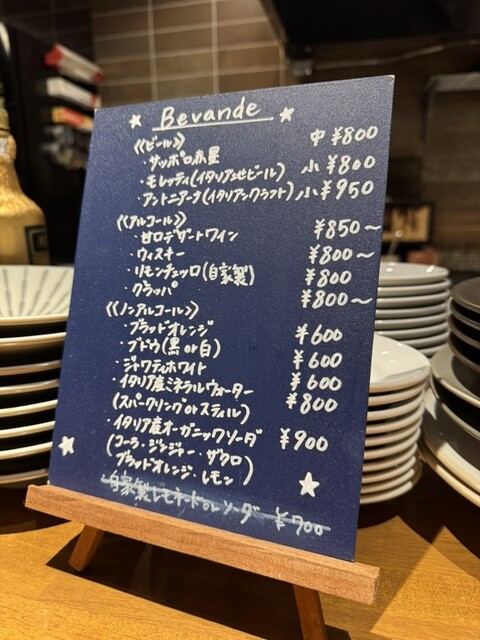 ☆ Bevande ☆
《ビール》
・サッポロ赤星 中 ¥800
・モレッティ(イタリア生ビール) 小 ¥800
・アントニアーナ(イタリアンクラフト) 小 ¥950
《アルコール》
・甘口デザートワイン ¥850～
・ウィスキー ¥800～
・リモンチェッロ(自家製) ¥800
・グラッパ ¥800～
《ノンアルコール》
・ブラッドオレンジ ¥600
・ブドウ(黒or白) ¥600
・ジャワティホワイト ¥600
・イタリア産ミネラルウォーター ¥800
(スパークリングorスティル)
・イタリア産オーガニックソーダ ¥900
(コーラ・ジンジャー・ザクロ
ブラッドオレンジ・レモン)
・自家製レモネードorソーダ ¥700